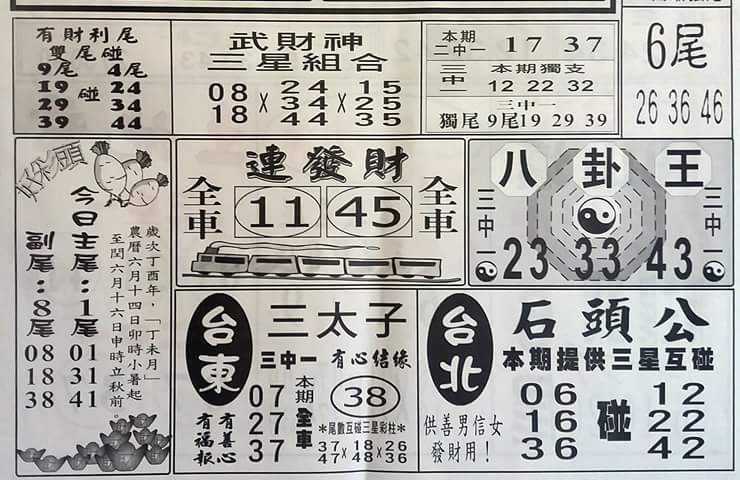 有財利尾
雙尾碰
9尾 4尾
19 碰 24
29 34
39 44
武財神
三星組合
08 × 24 × 15
18 34 25
44 35
本期
二中一 17 37
三中一 本期獨支
12 22 32
三中一
獨尾 9尾19 29 39
6尾
26 36 46
好彩頭
今日主尾:1尾
01
31
41
副尾:8尾
08
18
38
歲次丁酉年,「丁未月」
農曆六月十四日卯時小暑起
至閏六月十六日申時立秋前。
連發財
全車 11 45 全車
八卦王
三中一 三中一
23 33 43
台東
三太子
三中一 有心結緣
07
27
37
本期全車
38
有善心
有福報
*尾數互碰三星彩柱*
37×18×26
47×48×36
台北
石頭公
本期提供三星互碰
06 碰 12
16 22
36 42
供善男信女
發財用!